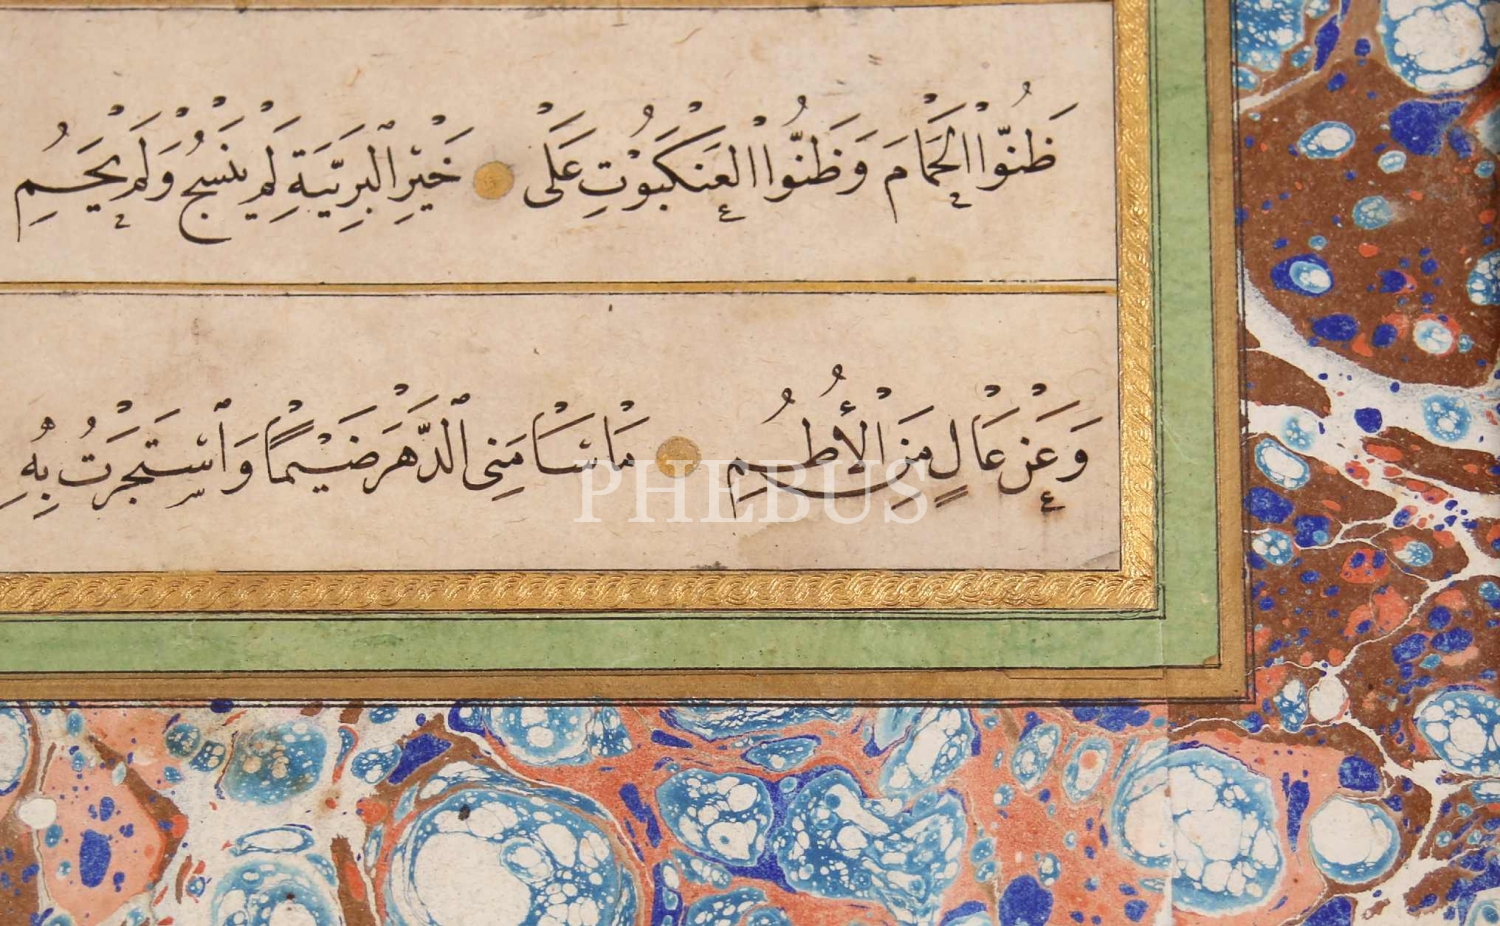 ظَنُّوا الْحَمَامَ وَظَنُّوا الْعَنْكَبُوْتِ عَلَى خَيْرِ الْبَرِيَّةِ لَمْ يَنْسُجْ وَلَمْ يَحُمِ
وَعَنْ عَالٍ مِنَ الْأُطُمِ مَا سَامَنِى الدَّهْرَ ضَيْمًا وَاسْتَجَرْتُ بِهِ
PHEBUS